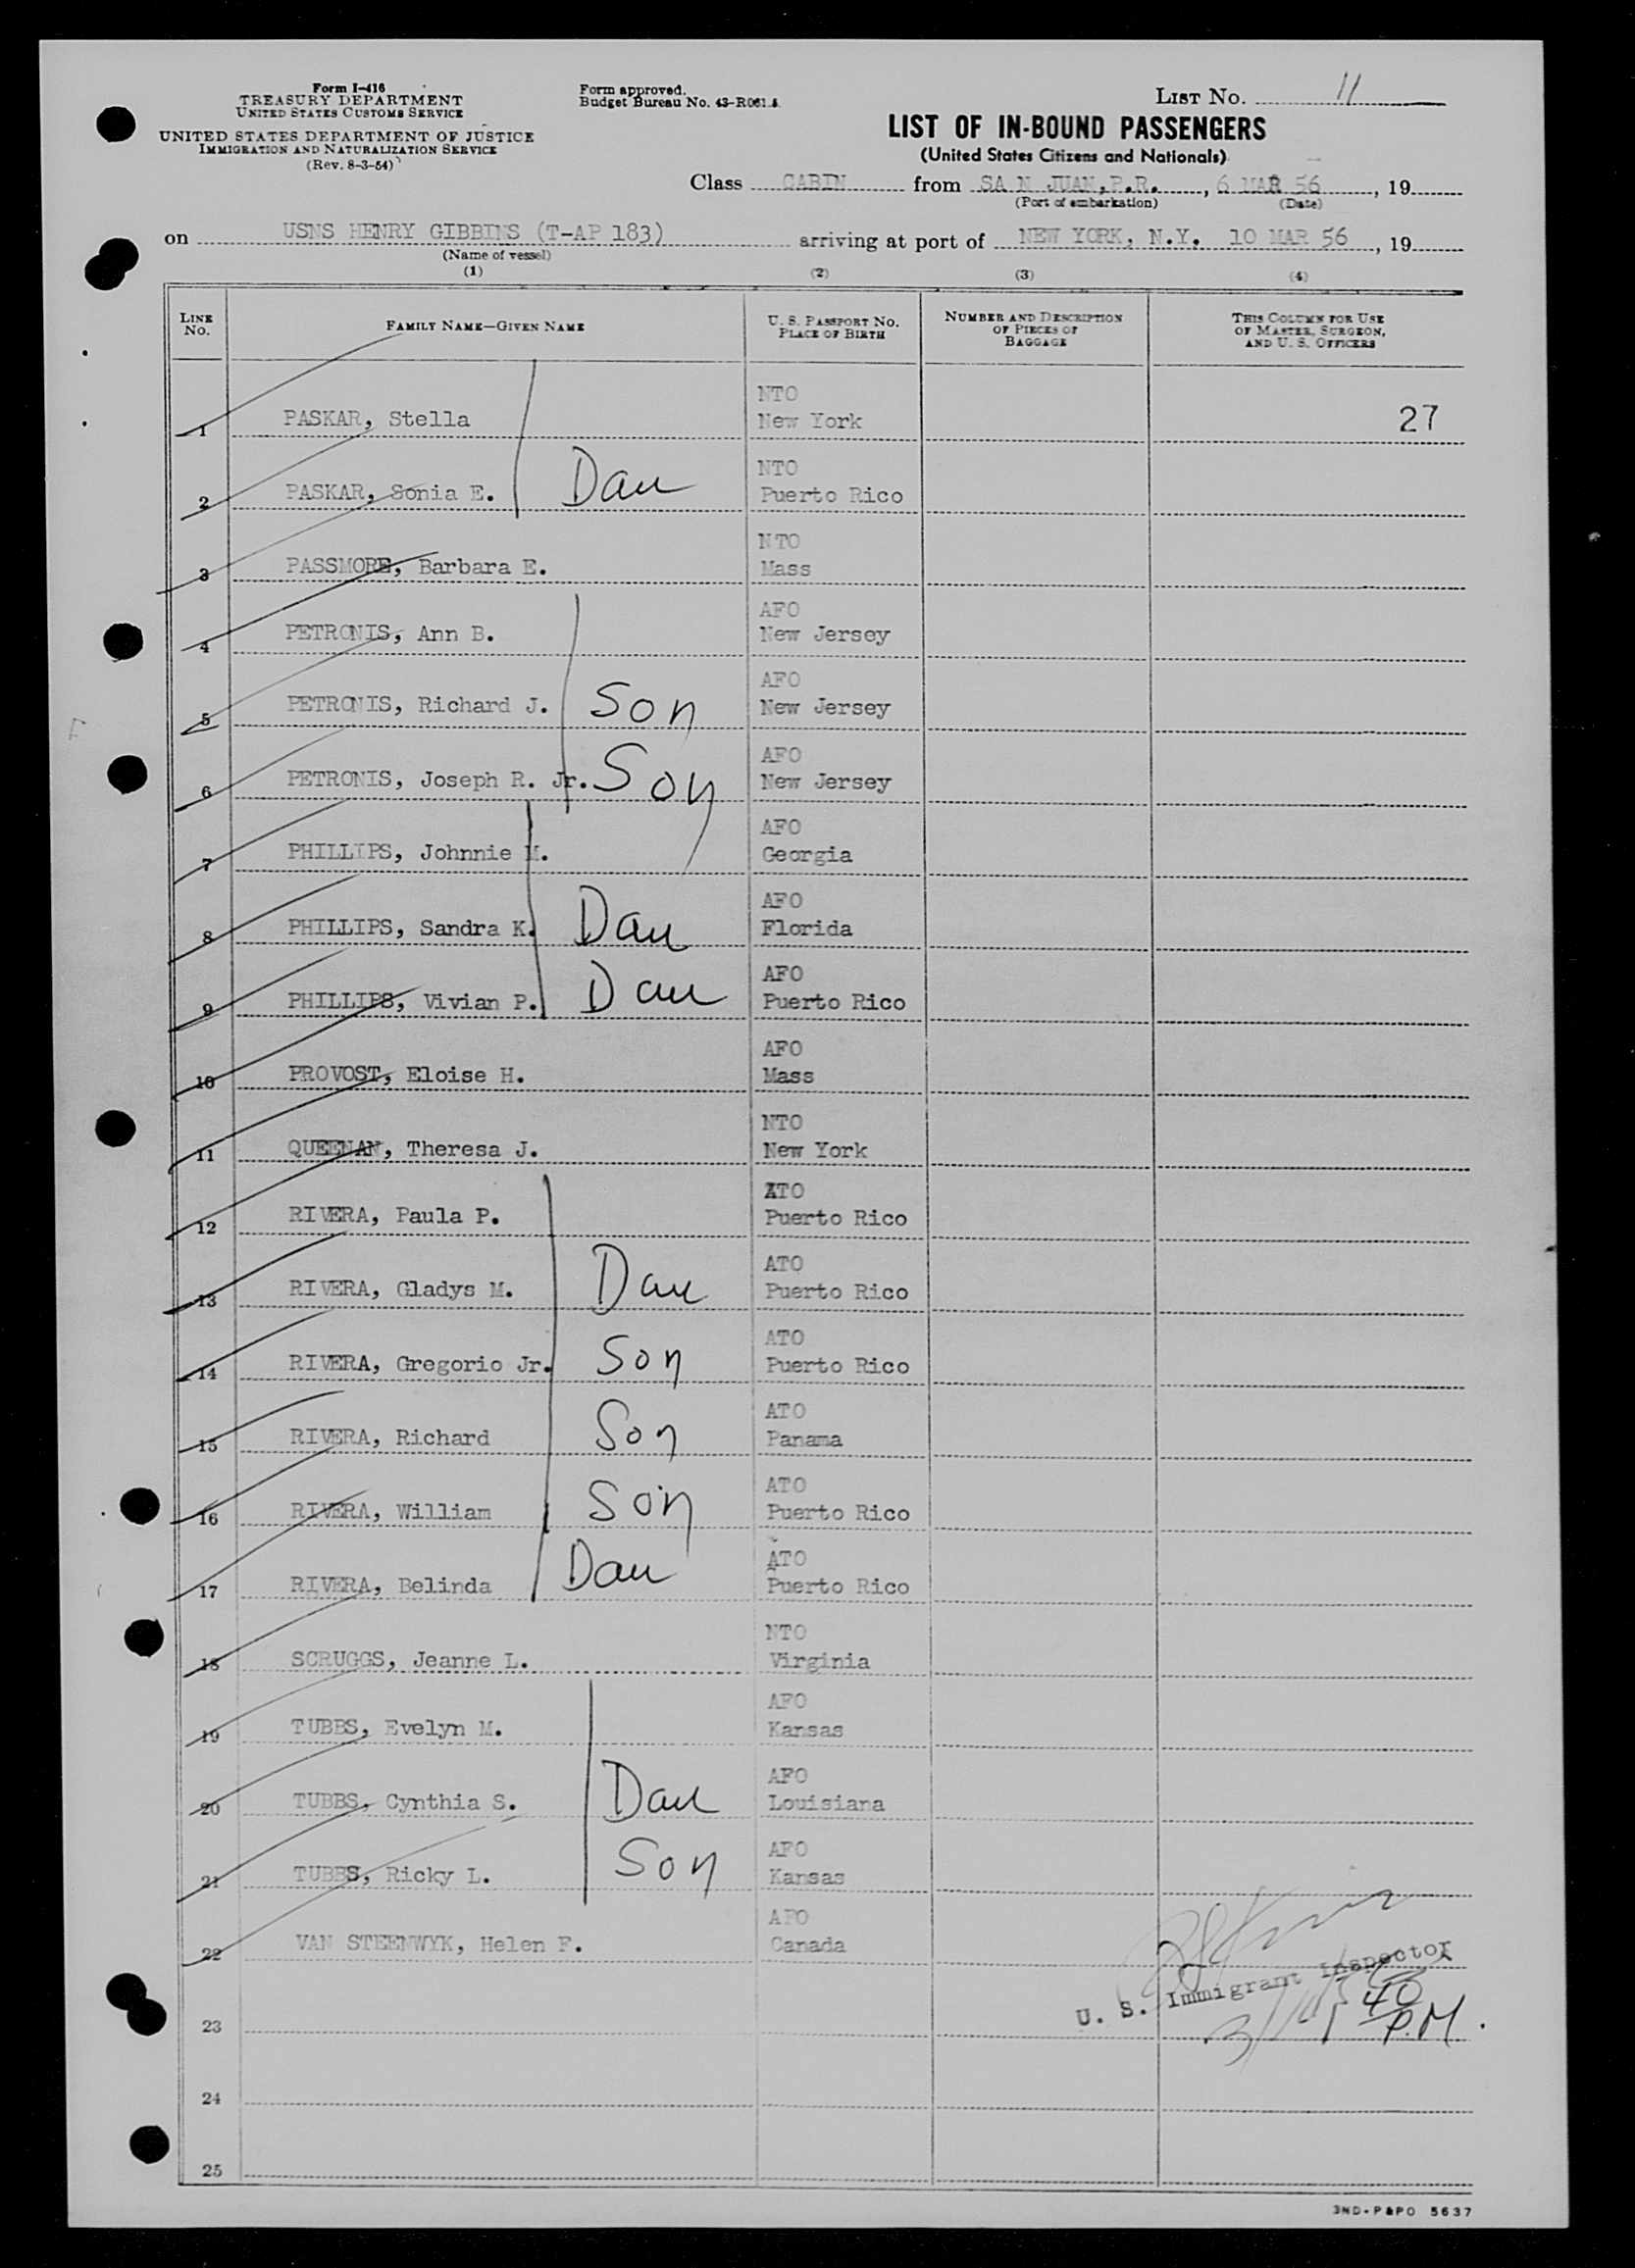 Form I-416
TREASURY DEPARTMENT
UNITED STATES CUSTOMS SERVICE
UNITED STATES DEPARTMENT OF JUSTICE
IMMIGRATION AND NATURALIZATION SERVICE
(Rev. 8-3-54)
Form approved.
Budget Bureau No. 43-R061.4.
LIST NO. 11
LIST OF IN-BOUND PASSENGERS
(United States Citizens and Nationals)
Class CABIN from SA N JUAN, P.R., 6 MAR 56, 19
(Port of embarkation) (Date)
on USNS HENRY GIBBINS (T-AP 183) arriving at port of NEW YORK, N.Y. 10 MAR 56, 19
(Name of vessel)
(1) (2) (3) (4)
LINE NO. FAMILY NAME—GIVEN NAME U. S. PASSPORT NO. PLACE OF BIRTH NUMBER AND DESCRIPTION OF PIECES OF BAGGAGE THIS COLUMN FOR USE OF MASTER, SURGEON, AND U. S. OFFICERS
NTO
1 PASKAR, Stella New York 27
NTO
2 PASKAR, Sonia E. Dau Puerto Rico
NTO
3 PASSMORE, Barbara E. Mass
AFO
4 PETRONIS, Ann B. New Jersey
AFO
5 PETRONIS, Richard J. Son New Jersey
AFO
6 PETRONIS, Joseph R. Jr. Son New Jersey
AFO
7 PHILLIPS, Johnnie M. Georgia
AFO
8 PHILLIPS, Sandra K. Dau Florida
AFO
9 PHILLIPS, Vivian P. Dau Puerto Rico
AFO
10 PROVOST, Eloise H. Mass
NTO
11 QUEENAN, Theresa J. New York
ATO
12 RIVERA, Paula P. Puerto Rico
ATO
13 RIVERA, Gladys M. Dau Puerto Rico
ATO
14 RIVERA, Gregorio Jr. Son Puerto Rico
ATO
15 RIVERA, Richard Son Panama
ATO
16 RIVERA, William Son Puerto Rico
ATO
17 RIVERA, Belinda Dau Puerto Rico
NTO
18 SCRUGGS, Jeanne L. Virginia
AFO
19 TUBBS, Evelyn M. Kansas
AFO
20 TUBBS, Cynthia S. Dau Louisiana
AFO
21 TUBBS, Ricky L. Son Kansas
AFO
22 VAN STEENWYK, Helen F. Canada
U. S. Immigrant Inspector
40
P.M.
23
24
25
3ND-P&PO 5637